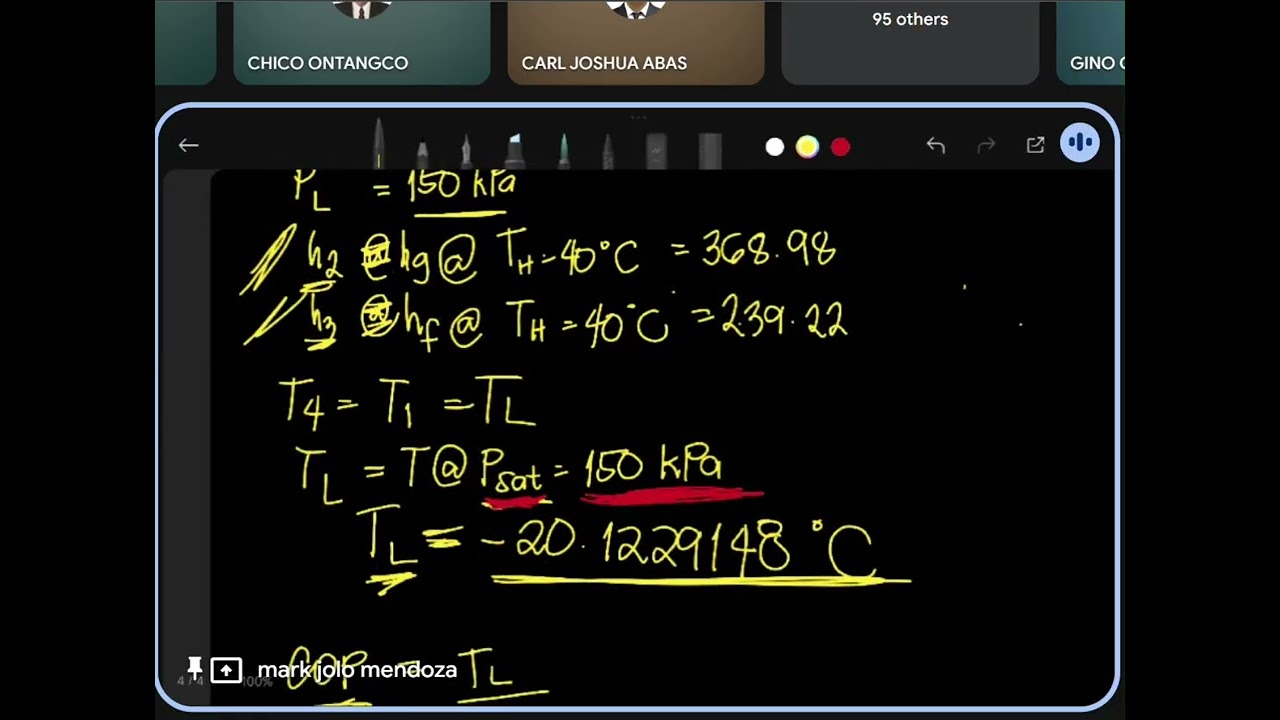 95 others
CHICO ONTANGCO
CARL JOSHUA ABAS
GINO
PL = 150 kPa
h2 hg @ TH = 40°C = 368.98
h3 hf @ TH = 40°C = 239.22
T4 = T1 = TL
TL = T @ Psat = 150 kPa
TL = -20.1229148 °C
COP = TL
mark jolo mendoza
4 / 4 100%